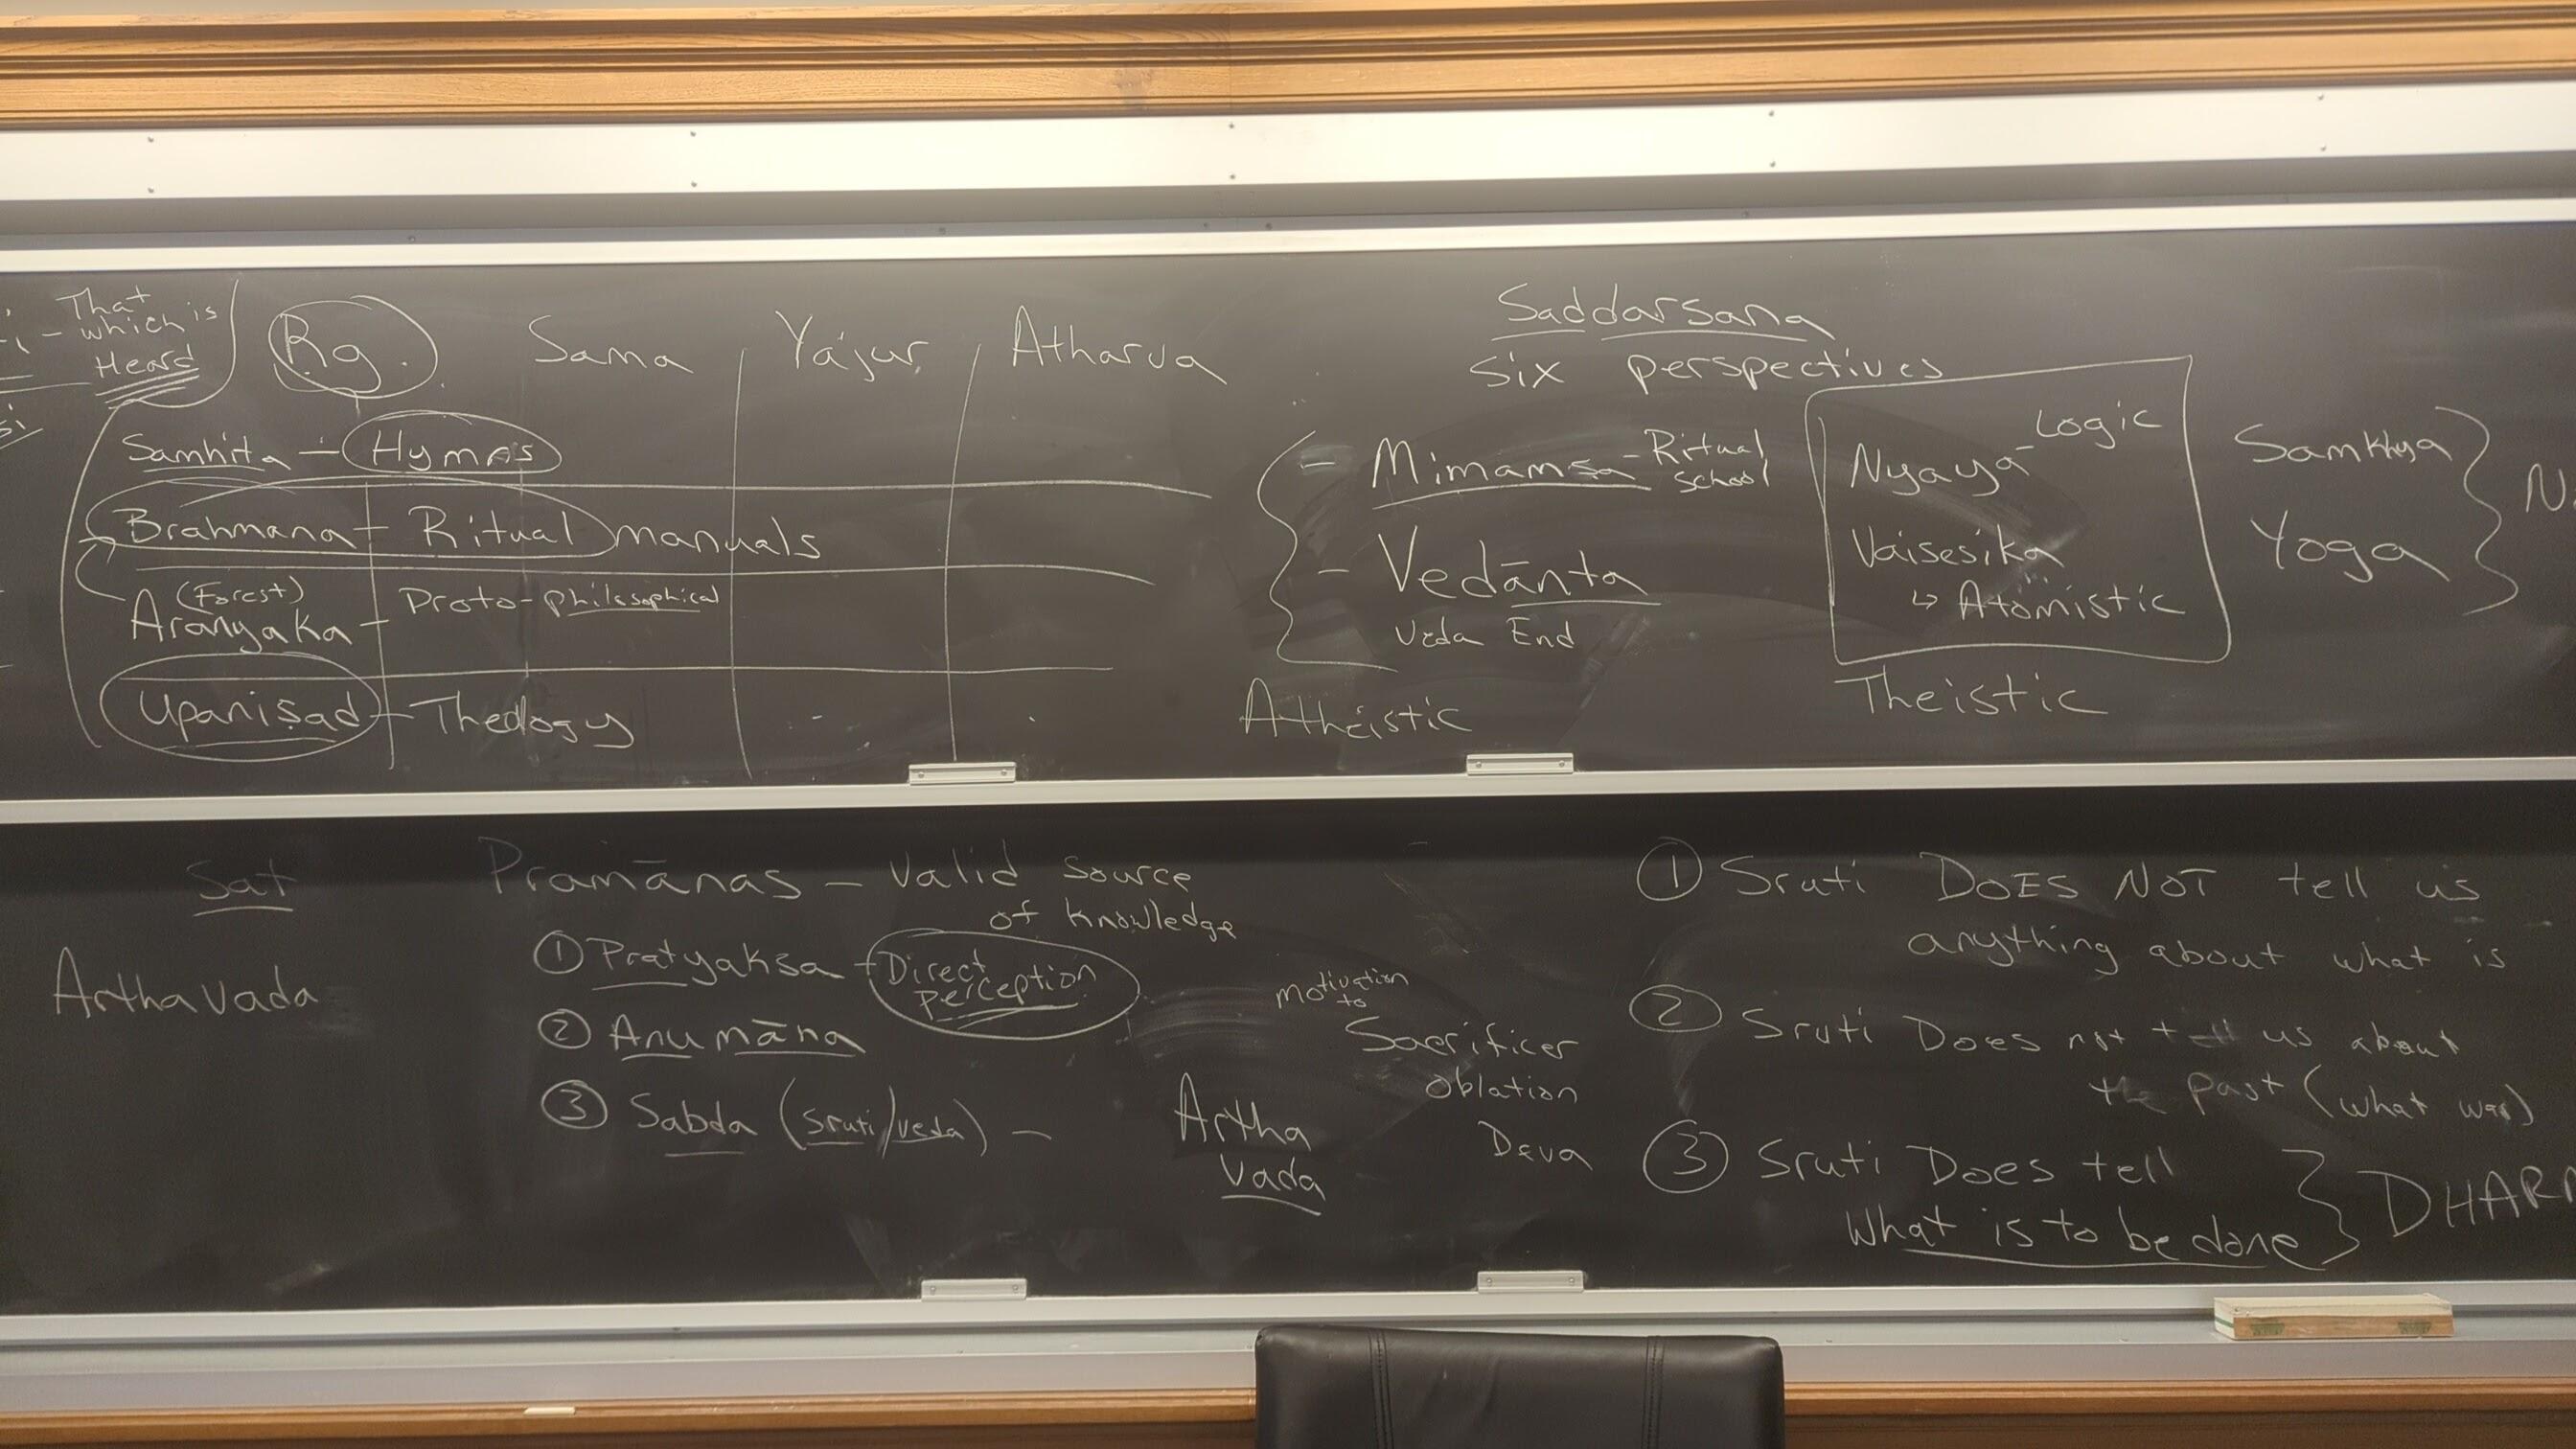 That
which is
Heard
Rg. Sama Yajur Atharva
Samhita - Hymns
Brahmana - Ritual manuals
(Forest)
Aranyaka - Proto-philosophical
Upaniṣad - Theology
Saddarsana
Six perspectives
- Mimamsa - Ritual
School
- Vedānta
Veda End
Atheistic
Nyaya - Logic
Vaisesika
↳ Atomistic
Theistic
Samkhya
Yoga
Sat
Arthavada
Pramānas - Valid source
of knowledge
① Pratyaksa - Direct
perception
② Anumāna
③ Sabda (sruti/veda) -
Artha
Vada
motivation
to
Sacrificer
oblation
Deva
① Sruti DOES NOT tell us
anything about what is
② Sruti Does not tell us about
the past (what was)
③ Sruti Does tell
What is to be done } DHAR